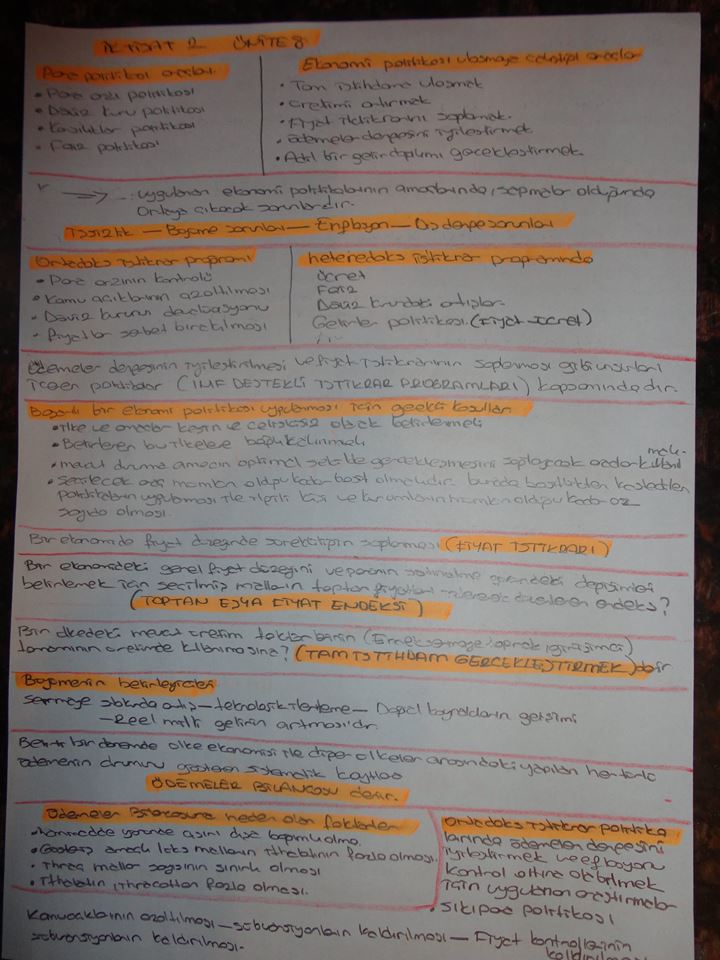 İKTİSAT 2 ÜNİTE 8
Para politikası araçları
• Para arzı politikası
• Döviz kuru politikası
• Karşılıklar politikası
• Faiz politikası
Ekonomi politikası ulaşmaya çalıştığı araçlar
• Tam istihdama ulaşmak
• Üretimi artırmak
• Fiyat istikrarını sağlamak.
• ödemeler dengesini iyileştirmek
• Adil bir gelir dağılımı gerçekleştirmek.
uygulanan ekonomi politikalarının amaçlarında, sapmalar olduğunda
ortaya çıkacak sorunlardır.
İşsizlik — Büyüme sorunları — Enflasyon — Dış denge sorunları
Ortodoks istikrar programı
• Para arzının kontrolü
• Kamu açıklarının azaltılması
• Döviz kurunu devalüasyonu
• Fiyatlar sabet bırakılması
heteredoks istikrar programında
ücret
Faiz
Döviz kurundaki artışlar.
Gelirler politikası. (Fiyat-ücret)
Ödemeler dengesinin iyileştirilmesi ve fiyat istikrarının sağlanması gibi unsurları
içeren politikalar (IMF DESTEKLİ İSTİKRAR PROGRAMLARI) kapsamındadır.
Başarılı bir ekonomi politikası uygulanması için gerekli koşullar
• ilke ve amaçlar kesin ve çelişkisiz olarak belirlenmeli
• Belirlenen bu ilkelere bağlı kalınmalı
• mevcut duruma amacın optimal şekilde gerçekleşmesini sağlayacak araçlar kullanılmalı.
• Seçilecek araç mümkün olduğu kadar basit olmalıdır. burada basitlikten kastedilen
politikaların uygulanması ile ilgili kişi ve kurumların mümkün olduğu kadar az
sayıda olması.
Bir ekonomide fiyat düzeyinde sürekliliğin sağlanması (FİYAT İSTİKRARI)
Bir ekonomideki genel fiyat düzeyini ve paranın satınalma gücündeki değişimleri
belirlemek için seçilmiş malların toptan fiyatları düzenlenen endeks?
(TOPTAN EŞYA FİYAT ENDEKSİ)
Bir ülkedeki mevcut üretim faktörlerinin (Emek, sermaye, toprak, girişimci)
tamamının üretimde kullanılmasına? (TAM İSTİHDAM GERÇEKLEŞTİRMEK) dir
Büyümenin belirleyicileri
Sermaye stokunda artış — teknolojik ilerleme — Doğal kaynakların gelişimi
— Reel milli gelirin artması'dır.
Belirli bir dönemde ülke ekonomisi ile diğer ülkeler arasındaki yapılan her türlü
ödemenin durumu gösteren sistematik kayıtlara
ÖDEMELER BİLANÇOSU denir.
Ödemeler Bilançosuna neden olan faktörler
• hammadde yönünde aşırı dışa bağımlı olma.
• Gösteriş amaçlı lüks malların ithalatının fazla olması.
• İhraç mallar sayısının sınırlı olması
• İthalatın ihracattan fazla olması.
Ortodoks istikrar politika
larında ödemeler dengesini
iyileştirmek ve enflasyonu
kontrol altına alabilmek
için uygulanan araştırmalar
• SIKI para politikası
Kamu açıklarının azaltılması — sübvansiyonların kaldırılması — Fiyat kontrollerinin
sübvansiyonların kaldırılması. kaldırılması